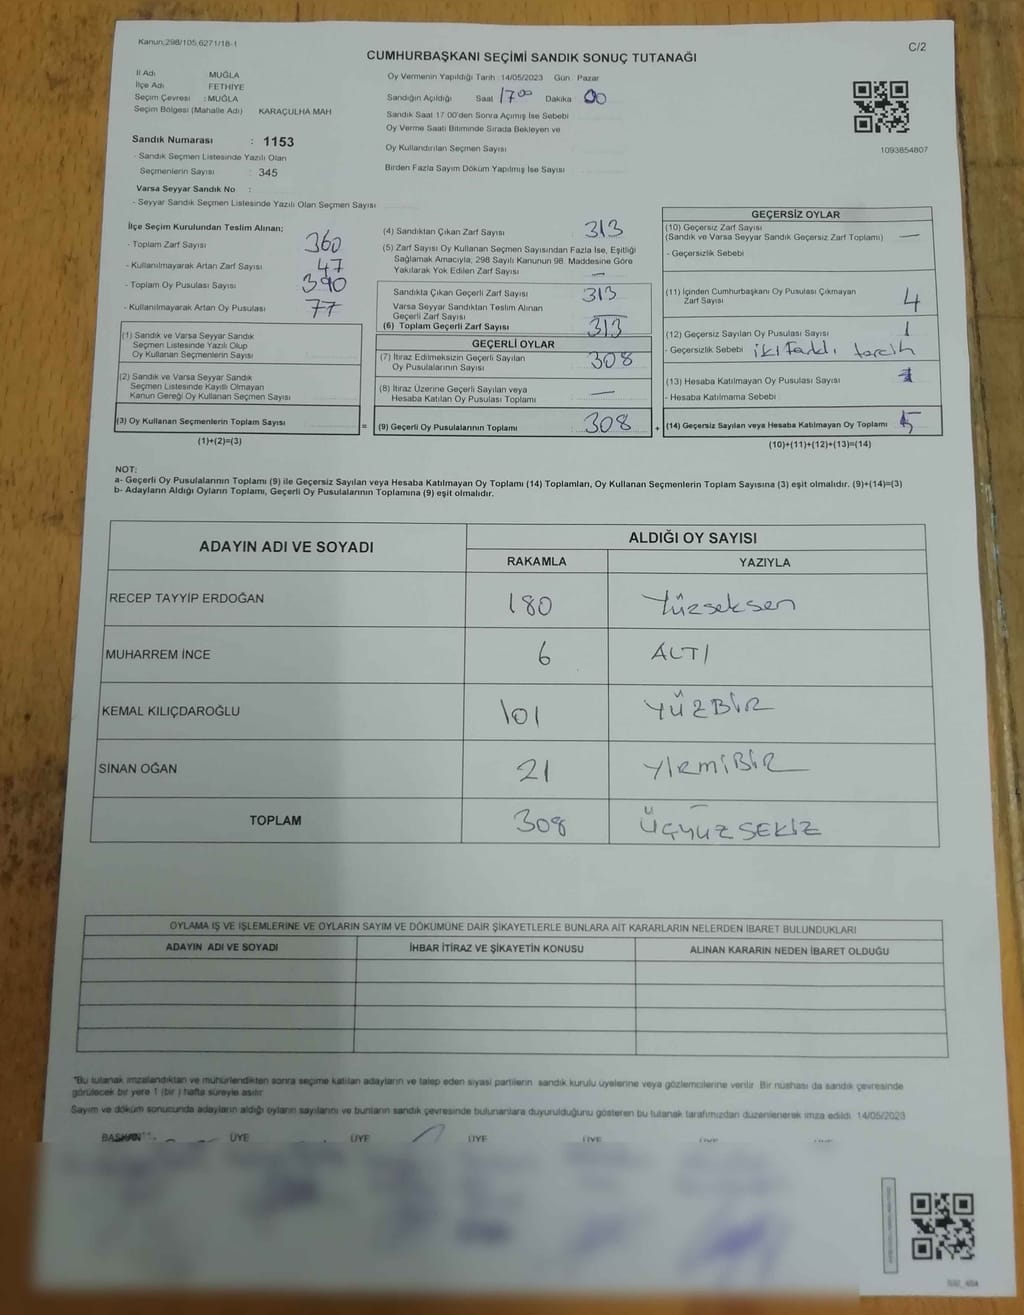 Kanun;298/105,6271/18-1
C/2
CUMHURBAŞKANI SEÇİMİ SANDIK SONUÇ TUTANAĞI
İl Adı MUĞLA
İlçe Adı FETHİYE
Seçim Çevresi : MUĞLA
Seçim Bölgesi (Mahalle Adı) KARAÇULHA MAH
Sandık Numarası : 1153
- Sandık Seçmen Listesinde Yazılı Olan
Seçmenlerin Sayısı : 345
Varsa Seyyar Sandık No :
- Seyyar Sandık Seçmen Listesinde Yazılı Olan Seçmen Sayısı
Oy Vermenin Yapıldığı Tarih : 14/05/2023 Gün : Pazar
Sandığın Açıldığı Saat 17 00 Dakika 00
Sandık Saat 17 00'den Sonra Açımış İse Sebebi
Oy Verme Saati Bitiminde Sırada Bekleyen ve
Oy Kullandırılan Seçmen Sayısı
Birden Fazla Sayım Döküm Yapılmış İse Sayısı
1093854807
İlçe Seçim Kurulundan Teslim Alınan;
- Toplam Zarf Sayısı 360
- Kullanılmayarak Artan Zarf Sayısı 47
- Toplam Oy Pusulası Sayısı 390
- Kullanılmayarak Artan Oy Pusulası 77
(1) Sandık ve Varsa Seyyar Sandık
Seçmen Listesinde Yazılı Olup
Oy Kullanan Seçmenlerin Sayısı
(2) Sandık ve Varsa Seyyar Sandık
Seçmen Listesinde Kayıtlı Olmayan
Kanun Gereği Oy Kullanan Seçmen Sayısı
(3) Oy Kullanan Seçmenlerin Toplam Sayısı =
(1)+(2)=(3)
(4) Sandıktan Çıkan Zarf Sayısı 313
(5) Zarf Sayısı Oy Kullanan Seçmen Sayısından Fazla İse, Eşitliği
Sağlamak Amacıyla, 298 Sayılı Kanunun 98. Maddesine Göre
Yakılarak Yok Edilen Zarf Sayısı —
Sandıkta Çıkan Geçerli Zarf Sayısı 313
Varsa Seyyar Sandıktan Teslim Alınan
Geçerli Zarf Sayısı
(6) Toplam Geçerli Zarf Sayısı 313
GEÇERLİ OYLAR
(7) İtiraz Edilmeksizin Geçerli Sayılan
Oy Pusulalarının Sayısı 308
(8) İtiraz Üzerine Geçerli Sayılan veya
Hesaba Katılan Oy Pusulası Toplamı —
(9) Geçerli Oy Pusulalarının Toplamı 308 +
GEÇERSİZ OYLAR
(10) Geçersiz Zarf Sayısı
(Sandık ve Varsa Seyyar Sandık Geçersiz Zarf Toplamı) —
- Geçersizlik Sebebi
(11) İçinden Cumhurbaşkanı Oy Pusulası Çıkmayan
Zarf Sayısı 4
(12) Geçersiz Sayılan Oy Pusulası Sayısı 1
- Geçersizlik Sebebi iki farklı tercih
(13) Hesaba Katılmayan Oy Pusulası Sayısı
- Hesaba Katılmama Sebebi
(14) Geçersiz Sayılan veya Hesaba Katılmayan Oy Toplamı 5
(10)+(11)+(12)+(13)=(14)
NOT:
a- Geçerli Oy Pusulalarının Toplamı (9) ile Geçersiz Sayılan veya Hesaba Katılmayan Oy Toplamı (14) Toplamları, Oy Kullanan Seçmenlerin Toplam Sayısına (3) eşit olmalıdır. (9)+(14)=(3)
b- Adayların Aldığı Oyların Toplamı, Geçerli Oy Pusulalarının Toplamına (9) eşit olmalıdır.
ADAYIN ADI VE SOYADI
ALDIĞI OY SAYISI
RAKAMLA YAZIYLA
RECEP TAYYİP ERDOĞAN 180 Yüzseksen
MUHARREM İNCE 6 ALTI
KEMAL KILIÇDAROĞLU 101 YÜZBİR
SİNAN OĞAN 21 YİRMİBİR
TOPLAM 308 ÜÇYÜZ SEKİZ
OYLAMA İŞ VE İŞLEMLERİNE VE OYLARIN SAYIM VE DÖKÜMÜNE DAİR ŞİKAYETLERLE BUNLARA AİT KARARLARIN NELERDEN İBARET BULUNDUKLARI
ADAYIN ADI VE SOYADI İHBAR İTİRAZ VE ŞİKAYETİN KONUSU ALINAN KARARIN NEDEN İBARET OLDUĞU
"Bu tutanak imzalandıktan ve mühürlendikten sonra seçime katılan adayların ve talep eden siyasi partilerin sandık kurulu üyelerine veya gözlemcilerine verilir. Bir nüshası da sandık çevresinde
görülecek bir yere 1 (bir ) hafta süreyle asılır
Sayım ve döküm sonucunda adayların aldığı oyların sayılarını ve bunların sandık çevresinde bulunanlara duyurulduğunu gösteren bu tutanak tarafımızdan düzenlenerek imza edildi 14/05/2023
BAŞKAN ÜYE ÜYE ÜYE ÜYE